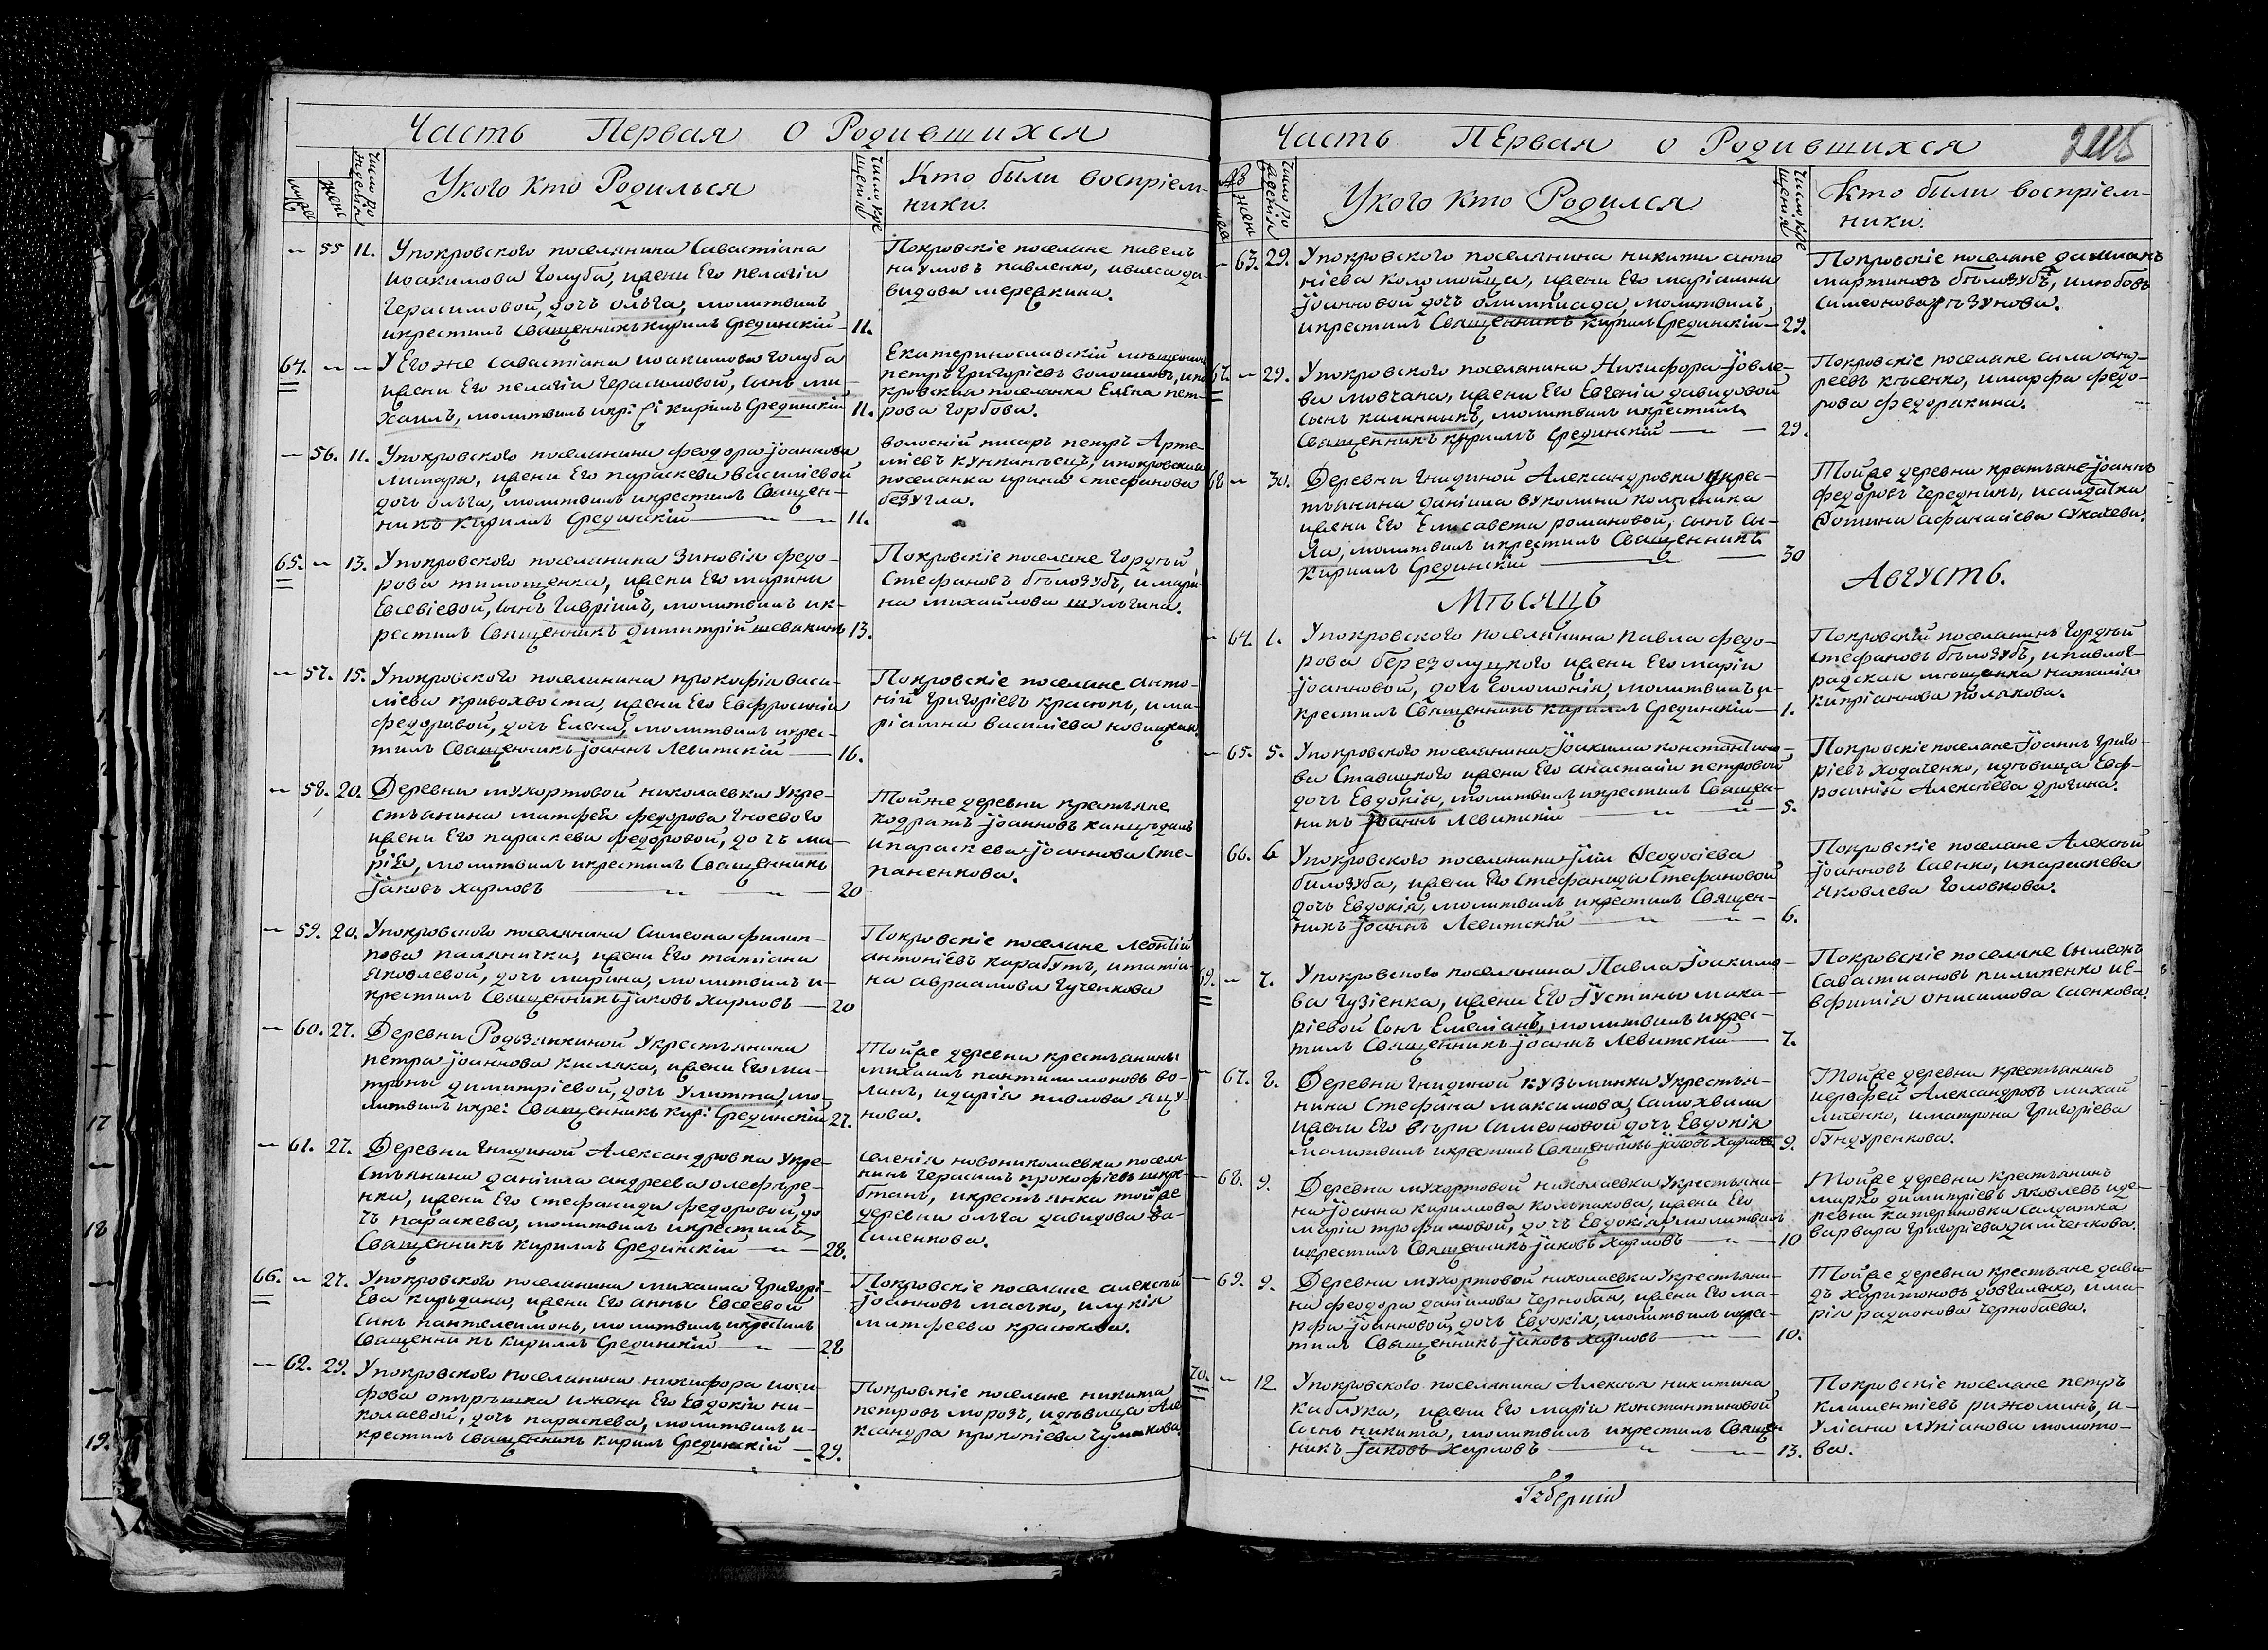 Часть Первая О Родившихся
мужс
женс
Число ро
жденія
У кого кто Родилься
Число кре
щенія
Кто были воспріем-
ники.
— 55 11. У покровского поселянина Савастіана
Иоакимова Голуба, и жени Его пелагіи
Герасимовой, дочь Ольга, молитвилъ
и крестилъ Священникъ Кирилъ Срединскій — 11.
Покровскіе поселане павелъ
наумовъ павленко, и васса да-
видова меревкина.
64. — — У Его же савастіана иоакимова голуба
и жени Его пелагіи Герасимовой, сынъ ми-
хаилъ, молитвилъ и кр: Кирилъ Срединскій 11.
Екатеринославскій мѣщанинъ
петръ Григоріевъ волошинъ, и по-
кровская поселанка Елена пет-
рова Горбова.
— 56. 11. У покровского поселянина феодора Іоаннова
лимаря, и жени Его параскеви василіевой
дочь ольга, молитвилъ и крестилъ Священ-
никъ Кирилъ Срединскій — 11.
волосній писарь петръ Арте-
міевъ , и покровская
поселанка ирина Стефанова
безугла.
65. — 13. У покровского поселянина Зиновія федо-
рова тимощенка, и жени Его марины
Евсевіевой, сынъ Гавріилъ, молитвилъ и к-
рестилъ Священникъ Димитрій шевакинъ 13.
Покровскіе поселане Гордѣй
Стефановъ бѣлозубъ, и мари-
на михайлова шульгина.
— 57. 15. У покровского поселянина прокофія васи-
ліева кривохвоста, и жени Его Евфросиніи
федоровой, дочь Елена, молитвилъ и крес-
тилъ Священникъ Іоаннъ Левитскій — 16.
Покровскіе поселане Анто-
ній Григоріевъ красюкъ, и ма-
ріамна василіева новицкая.
— 58. 20. Деревни мухортовой николаевки У кре-
стьянина матфея федорова Гноевого
и жени Его параскеви федоровой, дочь ма-
рія, молитвилъ и крестилъ Священникъ
Іаковъ Харловъ — 20
Той же деревни крестьяне
кодратъ Іоанновъ
и параскева Іоаннова Сте-
паненкова.
— 59. 20. У покровского поселянина Симеона филип-
пова паляничка, и жени Его татіани
Яковлевой, дочь марина, молитвилъ и
крестилъ Священникъ Іаковъ Харловъ — 20
Покровскіе поселане Леонтій
антоніевъ карабутъ, и татіа-
на авраамова Гученкова
— 60. 27. Деревни Родзянкиной У крестьянина
петра Іоаннова кисляка, и жени Его ма-
троны димитріевой, дочь Улитта, мо-
литвилъ и кре: Священникъ Кир: Срединскій 27.
Той же деревни крестьянинъ
михаилъ пантилимоновъ во-
ланъ, и дарія павлова яцу-
нова.
— 61. 27. Деревни Гнидиной Александровки У кре-
стьянина даніила андреева олефире-
нка, и жени Его Стефаниди федоровой, до-
чь параскева, молитвилъ и крестилъ
Священникъ Кирилъ Срединскій — 28.
Селенія новониколаевки поселя-
нинъ Герасимъ прокофіевъ шкре-
бтанъ, и крестьянка той же
деревни ольга давидова ва-
силенкова.
66. — 27. У покровского поселянина михаила Григорі-
ева кирьдина, и жени Его Анны Евсеевой
Сынъ пантелеимонъ, молитвилъ и крестилъ
Священникъ Кирилъ Срединскій — 28
Покровскіе поселане алексѣй
Іоанновъ масько, и лукія
матфеева красюкова.
— 62. 29. У покровского поселянина никифора иоси-
фова опаришка и жени Его Евдокіи ни-
колаевой, дочь параскева, молитвилъ и
крестилъ Священникъ Кирилъ Срединскій — 29.
Покровскіе поселане никита
петровъ морозъ, и дѣвица Але-
ксандра прокопіева Чумакова.
Часть ПЕрвая о Родившихся
№
муж
жен
Число ро
жденія
У кого кто Родился
Число кре
щенія
Кто были воспріем-
ники.
— 63. 29. У покровского поселянина никити анто-
ніева коломойца, и жени Его маріамни
Іоанновой дочь олимпиада, молитвилъ
и крестилъ Священникъ Кирилъ Срединскій — 29.
Покровскіе поселане даміанъ
мартиновъ бѣлозубъ, и любовъ
Симеонова рѣзунова.
67. — 29. У покровского поселянина Никифора Іовле-
ва мовчана, и жени Его Евгеніи давидовой
Сынъ калинникъ, молитвилъ и крестилъ
Священникъ Кирилъ Срединскій — 29.
Покровскіе поселане сила анд-
реевъ касенко, и марфа федо-
рова федорякина.
68 — 30. Деревни Гнидиной Александровки У крес-
тьянина даніила вуколина колпчика
и жени Его Елисавети романовой, сынъ Си-
ла, молитвилъ и крестилъ Священникъ
Кирилъ Срединскій — 30
Той же деревни крестьяне Іоаннъ
федоровъ Чередникъ, и салдатка
Фотина афанасіева Сукачева.
Мѣсяцъ Августъ.
— 64. 1. У покровского поселянина павла федо-
рова березолуцкого и жени Его маріи
Іоанновой, дочь Соломонія, молитвилъ и
крестилъ Священникъ Кирилъ Срединскій — 1.
Покровскій поселанинъ Гордѣй
Стефановъ бѣлозубъ, и павлог-
радская мѣщанка наталія
кипріанова полякова.
— 65. 5. У покровского поселянина Іоакима константино-
ва Ставицкого и жени Его анастасіи петровой
дочь Евдокія, молитвилъ и крестилъ Священ-
никъ Іоаннъ Левитскій — 5.
Покровскіе поселане Іоаннъ Григо-
ріевъ Ходаченко, и дѣвица Евф-
росинія Алексѣева дрючина.
66. 6 У покровского поселянина Іліи Феодосіева
билозуба, и жени Его Стефаниды Стефановой
дочь Евдокія, молитвилъ и крестилъ Священ-
никъ Іоаннъ Левитскій — 6.
Покровскіе поселане Алексѣй
Іоанновъ Саенко, и параскева
Яковлева Головкова.
69. — 7. У покровского поселянина Павла Іоакимо-
ва Гузіенка, и жени Его Іустины мака-
ріевой Сынъ Емеліанъ, молитвилъ и крес-
тилъ Священникъ Іоаннъ Левитскій — 7.
Покровскіе поселяне Сѵмеонъ
Савастиановъ пилипенко и Е-
вфимія онисимова Саенкова.
— 67. 8. Деревни Гнидиной кузьминки У крестья-
нина Стефана максимова Самохвала
и жени Его вѣри Симеоновой дочь Евдокія
молитвилъ и крестилъ Священникъ Іаковъ Харловъ 9.
Той же деревни крестьянинъ
иерофей Александровъ михай-
личенко, и матрона Григоріева
бундуренкова.
— 68. 9. Деревни мухортовой николаевки У крестьяни-
на Іоанна кирилова колпакова, и жени Его
маріи трофимовой, дочь Евдокія, молитвилъ
и крестилъ Священникъ Іаковъ Харловъ — 10
Той же деревни крестьянинъ
марко димитріевъ яковлевъ и де-
ревни катериновки салдатка
варвара Григоріева димченкова.
— 69. 9. Деревни мухортовой николаевки У крестьяни-
на феодора даніилова Чернобая, и жени Его ма-
рфи Іоанновой дочь Евдокія, молитвилъ и крес-
тилъ Священникъ Іаковъ Харловъ — 10.
Той же деревни крестьяне дави-
дъ харитоновъ довгалько, и ма-
рія радионова Чернобаева.
70. — 12 У покровского поселянина Алексѣя никитина
каблука, и жени Его маріи константиновой
Сынъ никита, молитвилъ и крестилъ Священ-
никъ Іаковъ Харловъ — 13.
Покровскіе поселане петръ
климентіевъ рижоминъ, и
Уліана лукіанова момото-
ва.
Губерніи
17
18
19.